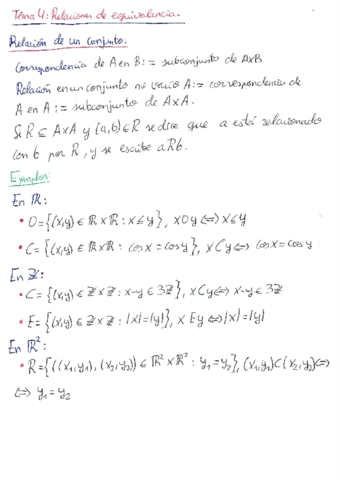 Tema 4: Relaciones de equivalencia.
Relación de un conjunto:
Correspondencia de A en B := subconjunto de AxB
Relación en un conjunto no vacío A := correspondencia de
A en A := subconjunto de AxA.
Si R ⊆ AxA y (a,b)∈R se dice que a está relacionado
con b por R, y se escribe aRb.
Ejemplos:
En ℝ:
• O={(x,y)∈ℝxℝ: x≤y}, xOy⟺x≤y
• C={(x,y)∈ℝxℝ: cosx=cosy}, xCy⟺cosx=cosy
En ℤ:
• C={(x,y)∈ℤxℤ: x-y∈3ℤ}, xCy⟺x-y∈3ℤ
• E={(x,y)∈ℤxℤ: |x|=|y|}, xEy⟺|x|=|y|
En ℝ²:
• R={((x₁,y₁),(x₂,y₂))∈ℝ²xℝ²: y₁=y₂}, (x₁,y₁)C(x₂,y₂)⟺
⟺ y₁=y₂